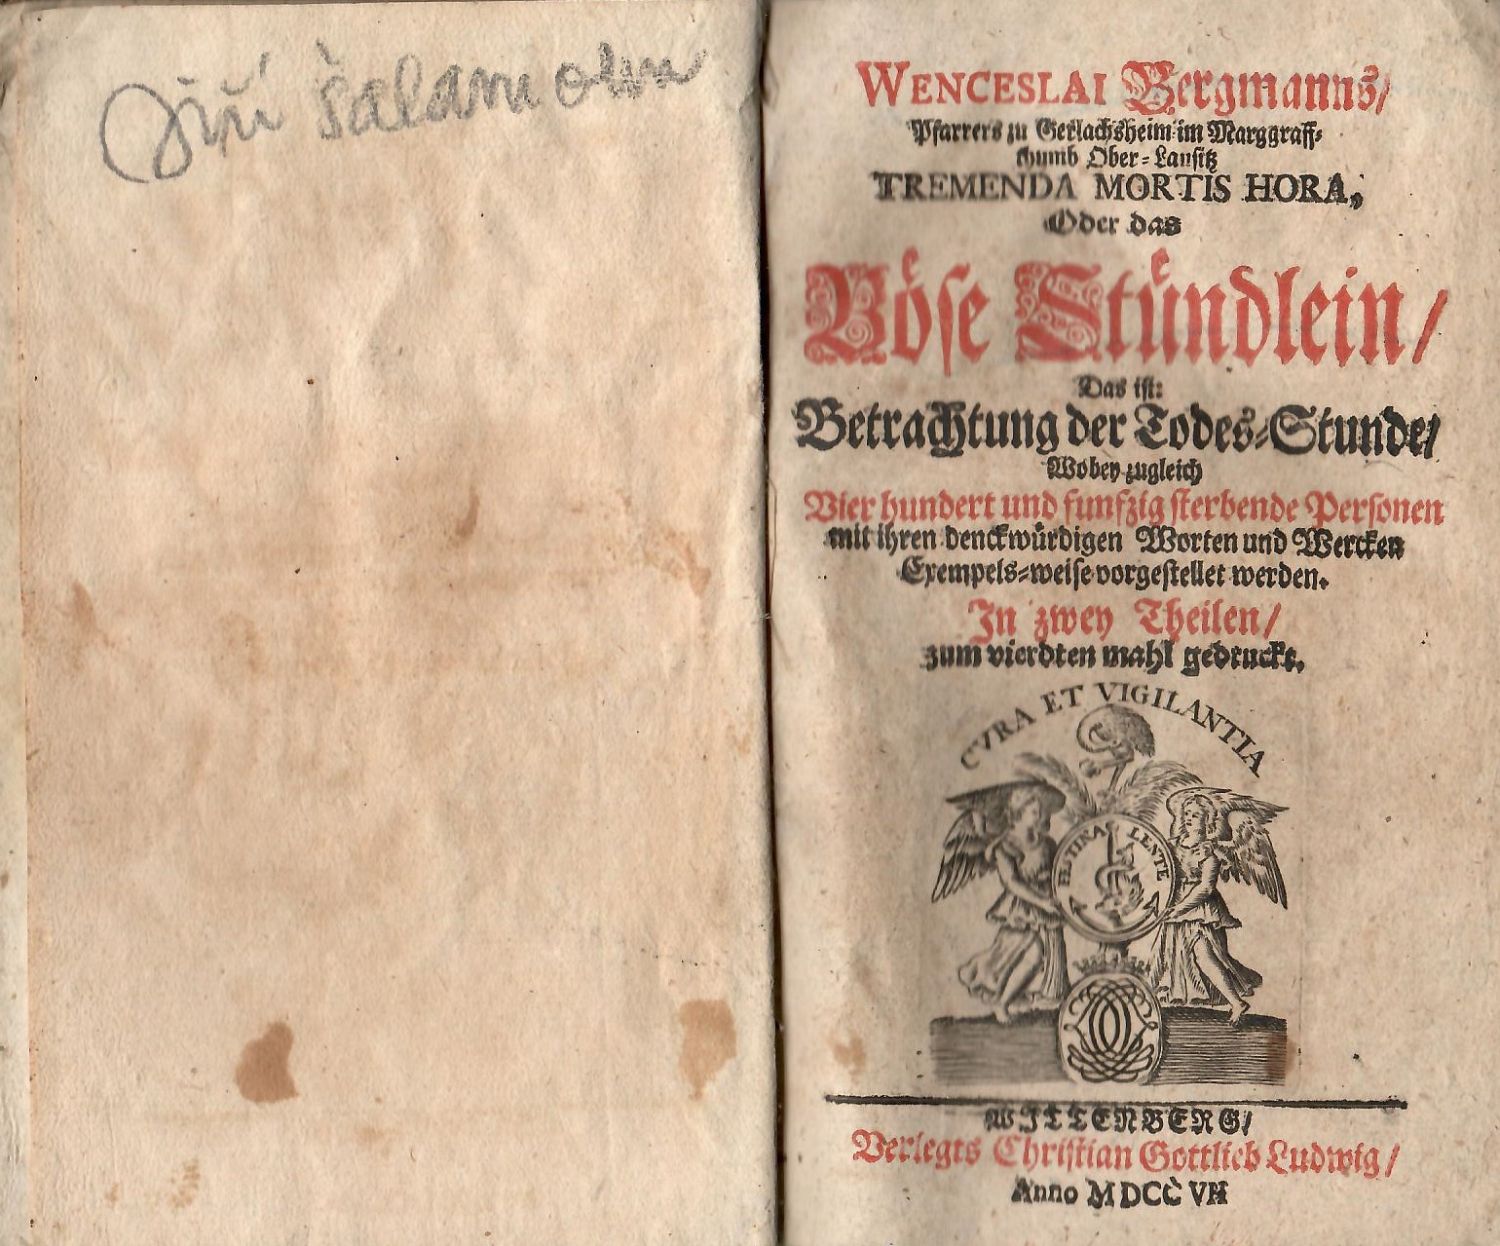 Jiří Šalamoun
WENCESLAI Bergmanns/
Pfarrers zu Gerlachsheim im Marggraff-
thumb Ober-Lausitz
TREMENDA MORTIS HORA,
Oder das
Böse Stündlein/
Das ist:
Betrachtung der Todes-Stunde/
Wobey zugleich
Vier hundert und funfzig sterbende Personen
mit ihren denckwürdigen Worten und Wercken
Exempels-weise vorgestellet werden.
In zwey Theilen/
zum vierdten mahl gedruckt.
CVRA ET VIGILANTIA
FESTINA LENTE
WITTENBERG/
Verlegts Christian Gottlieb Ludwig/
Anno MDCCVII